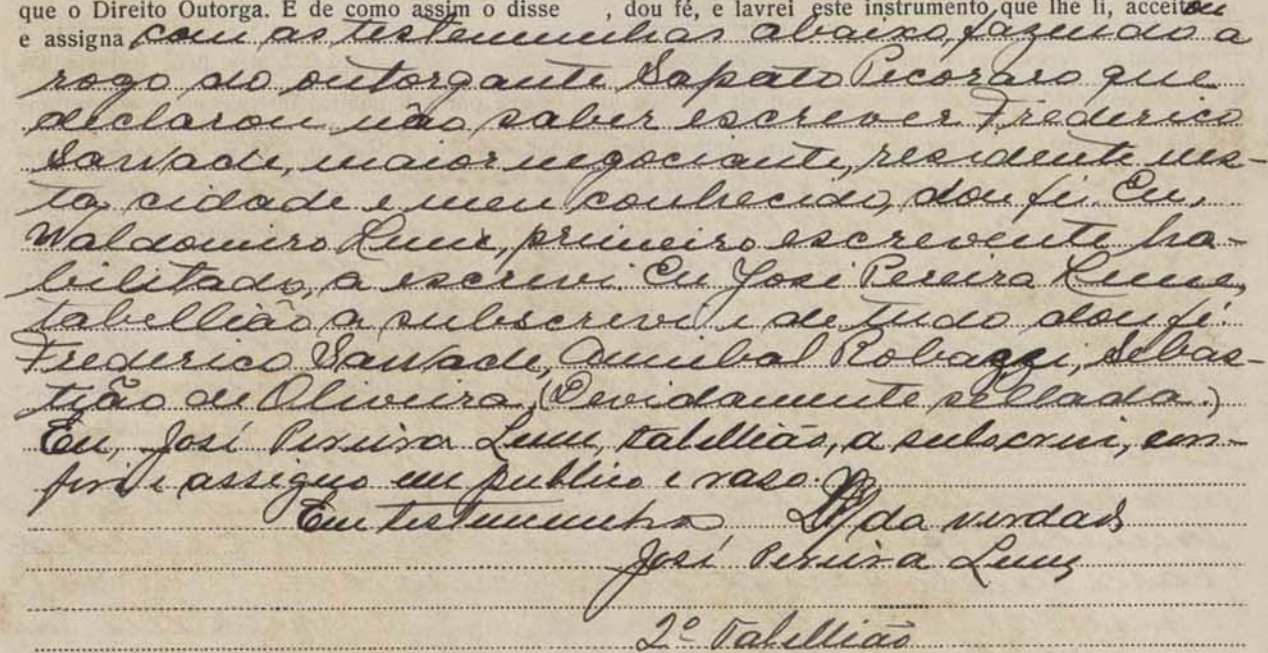 que o Direito Outorga. E de como assim o disse , dou fé, e lavrei este instrumento que lhe li, acceitou
e assigna com as testemunhas abaixo, fazendo a
rogo do outorgante Sapato Pecoraro que
declarou não saber escrever Frederico
Sarvade, maior negociante, residente nes-
ta cidade e meu conhecido, dou fé. Eu,
Waldomiro Leme, primeiro escrevente ha-
bilitado, a escrevi. Eu José Pereira Leme,
tabellião a subscrevi e de tudo dou fé.
Frederico Sarvade, Annibal Robazzi, Sebas-
tião de Oliveira. (Devidamente sellada.)
Eu, José Pereira Leme, tabellião, a subscrevi, con-
feri e assigno em publico e raso.
Em testemunho da verdade
José Pereira Leme
2º Tabellião